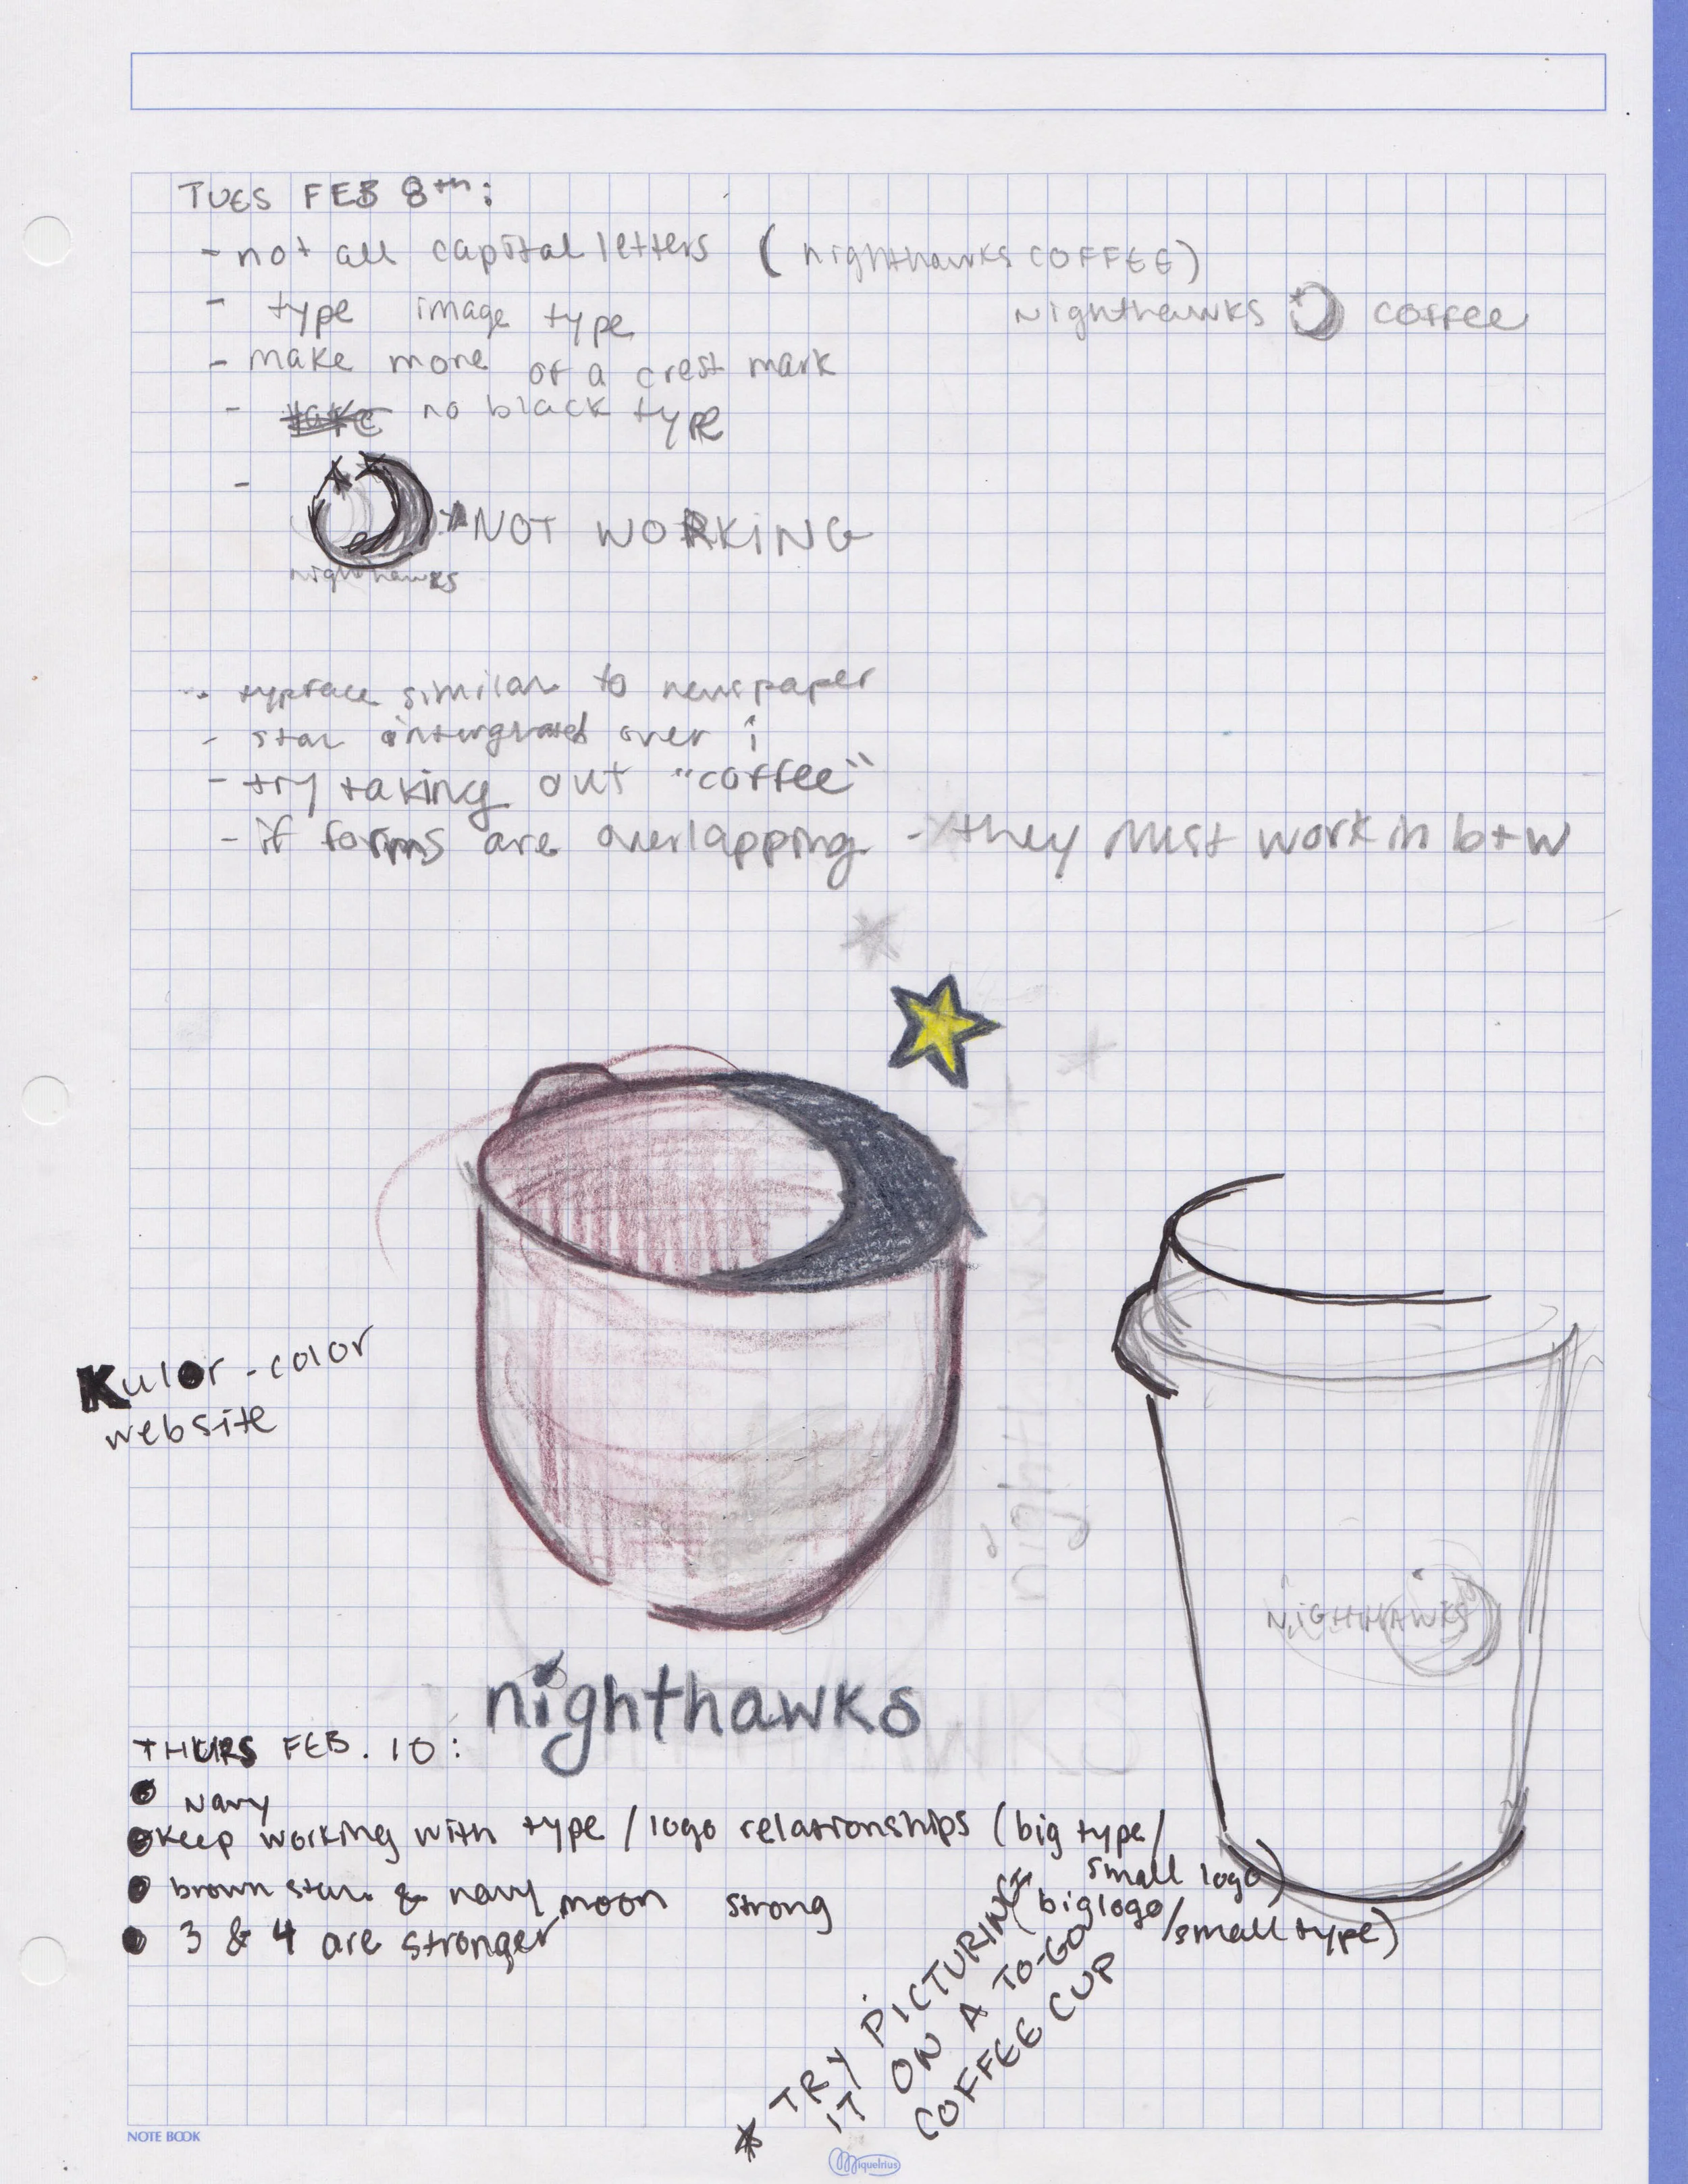 TUES FEB 8th:
- not all capital letters (nighthawks COFFEE)
- type image type
nighthawks coffee
- make more of a crest mark
- no black type
- NOT WORKING
nighthawks
- typface similar to newspaper
- star intergrated over i
- try taking out "coffee"
- if forms are overlapping - they must work in b+w
Kulor - color
website
nighthawks
NIGHTHAWKS
nighthawks
THURS FEB. 10:
Navy
keep working with type / logo relationships (big type/
small logo)
(big logo/small type)
brown star & navy moon strong
3 & 4 are stronger
* TRY PICTURING
IT ON A TO-GO
COFFEE CUP
NOTE BOOK
Miquelrius